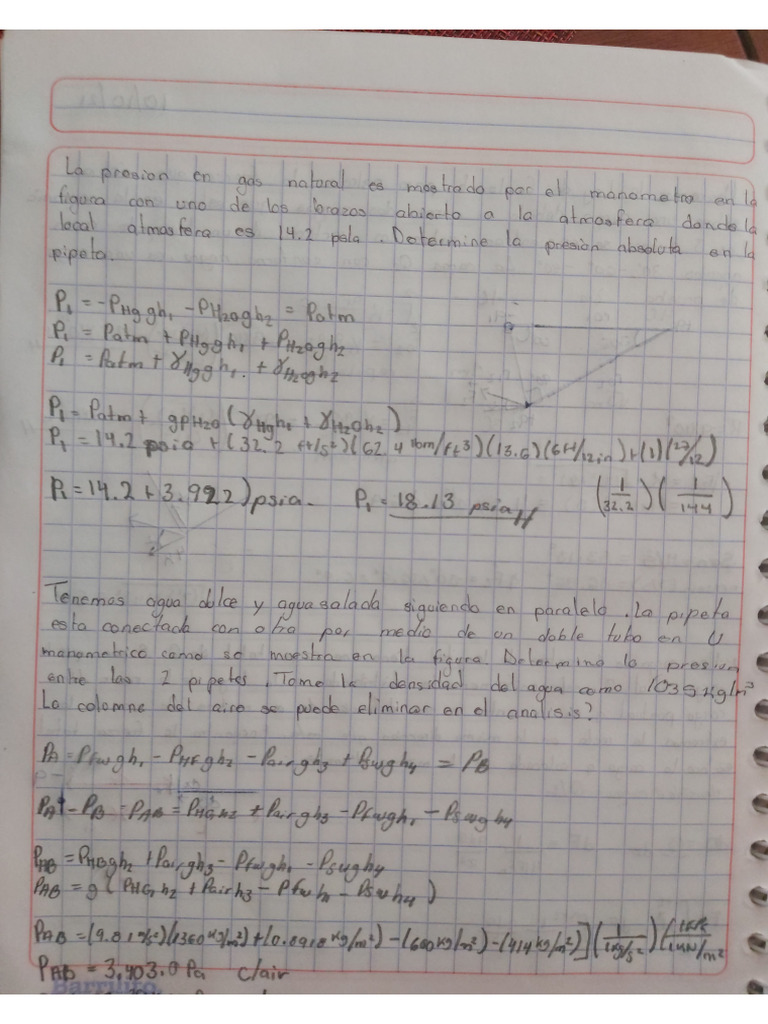 La presion en gas natural es mostrado por el manometro en la
figura con uno de los brazos abierto a la atmosfera donde la
local atmosfera es 14.2 psia. Determine la presion absoluta en la
pipeta.
P₁ = -PHg gh₁ - PH₂O gh₂ = Patm
P₁ = Patm + PHg gh₁ + PH₂O gh₂
P₁ = Patm + γHg gh₁. + γH₂O gh₂
P₁ = Patm + gρH₂O (γHg h₁ + γH₂O h₂)
P₁ = 14.2 psia + (32.2 ft/s²)(62.4 lbm/ft³)(13.6)(6H/12in)+(1)(27/12)
P₁ = 14.2 + 3.922) psia. P₁ = 18.13 psia (1/32.2)(1/144)
Tenemos agua dulce y agua salada siguiendo en paralelo. La pipeta
esta conectada con otra por medio de un doble tubo en U
manometrico como se muestra en la figura. Determine la presion
entre las 2 pipetas. Tome la densidad del agua como 1035 kg/m³
La columna del aire se puede eliminar en el analisis?
PA = Pfwgh₁ - PHggh₂ - Pairgh₃ + Pswgh₄ = PB
PA - PB = PAB = PHGh2 + Pairgh₃ - Pfwgh₁ - Pswgh₄
PAB = PHggh₂ + Pairgh₃ - Pfwgh₁ - Pswgh₄
PAB = g (PHG h₂ + Pairh₃ - Pfwh₁ - Pswh₄)
PAB = (9.81 /s²)(1360 kg/m²)+(0.8918 kg/m²) - (600 kg/m²) - (414 kg/m²)] (1/1kg/s²) (1/1KN/m²
PAB = 3,403.0 Pa c/air
Barrilito